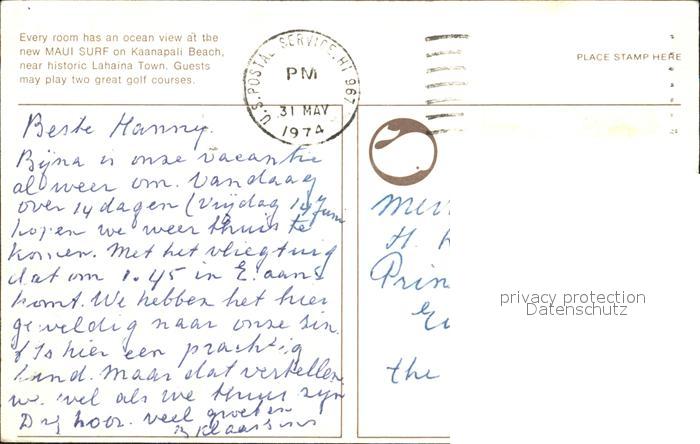 Every room has an ocean view at the
new MAUI SURF on Kaanapali Beach,
near historic Lahaina Town. Guests
may play two great golf courses.
U.S. POSTAL SERVICE, HI 967
PM
31 MAY
1974
PLACE STAMP HERE
Beste Hanny.
Bijna is onze vacantie
al weer om. Vandaag
over 14 dagen (Vrijdag 14 Juni
hopen we weer thuis te
komen. Met het vliegtuig
dat om 1.45 in E. aan
komt. We hebben het hier
geweldig naar onze sin.
t Is hier een prachtig
land. Maar dat vertellen
we wel als we thuis zyn
Dag hoor. veel groeten
Klaassens
H.
Prin
the
privacy protection
Datenschutz